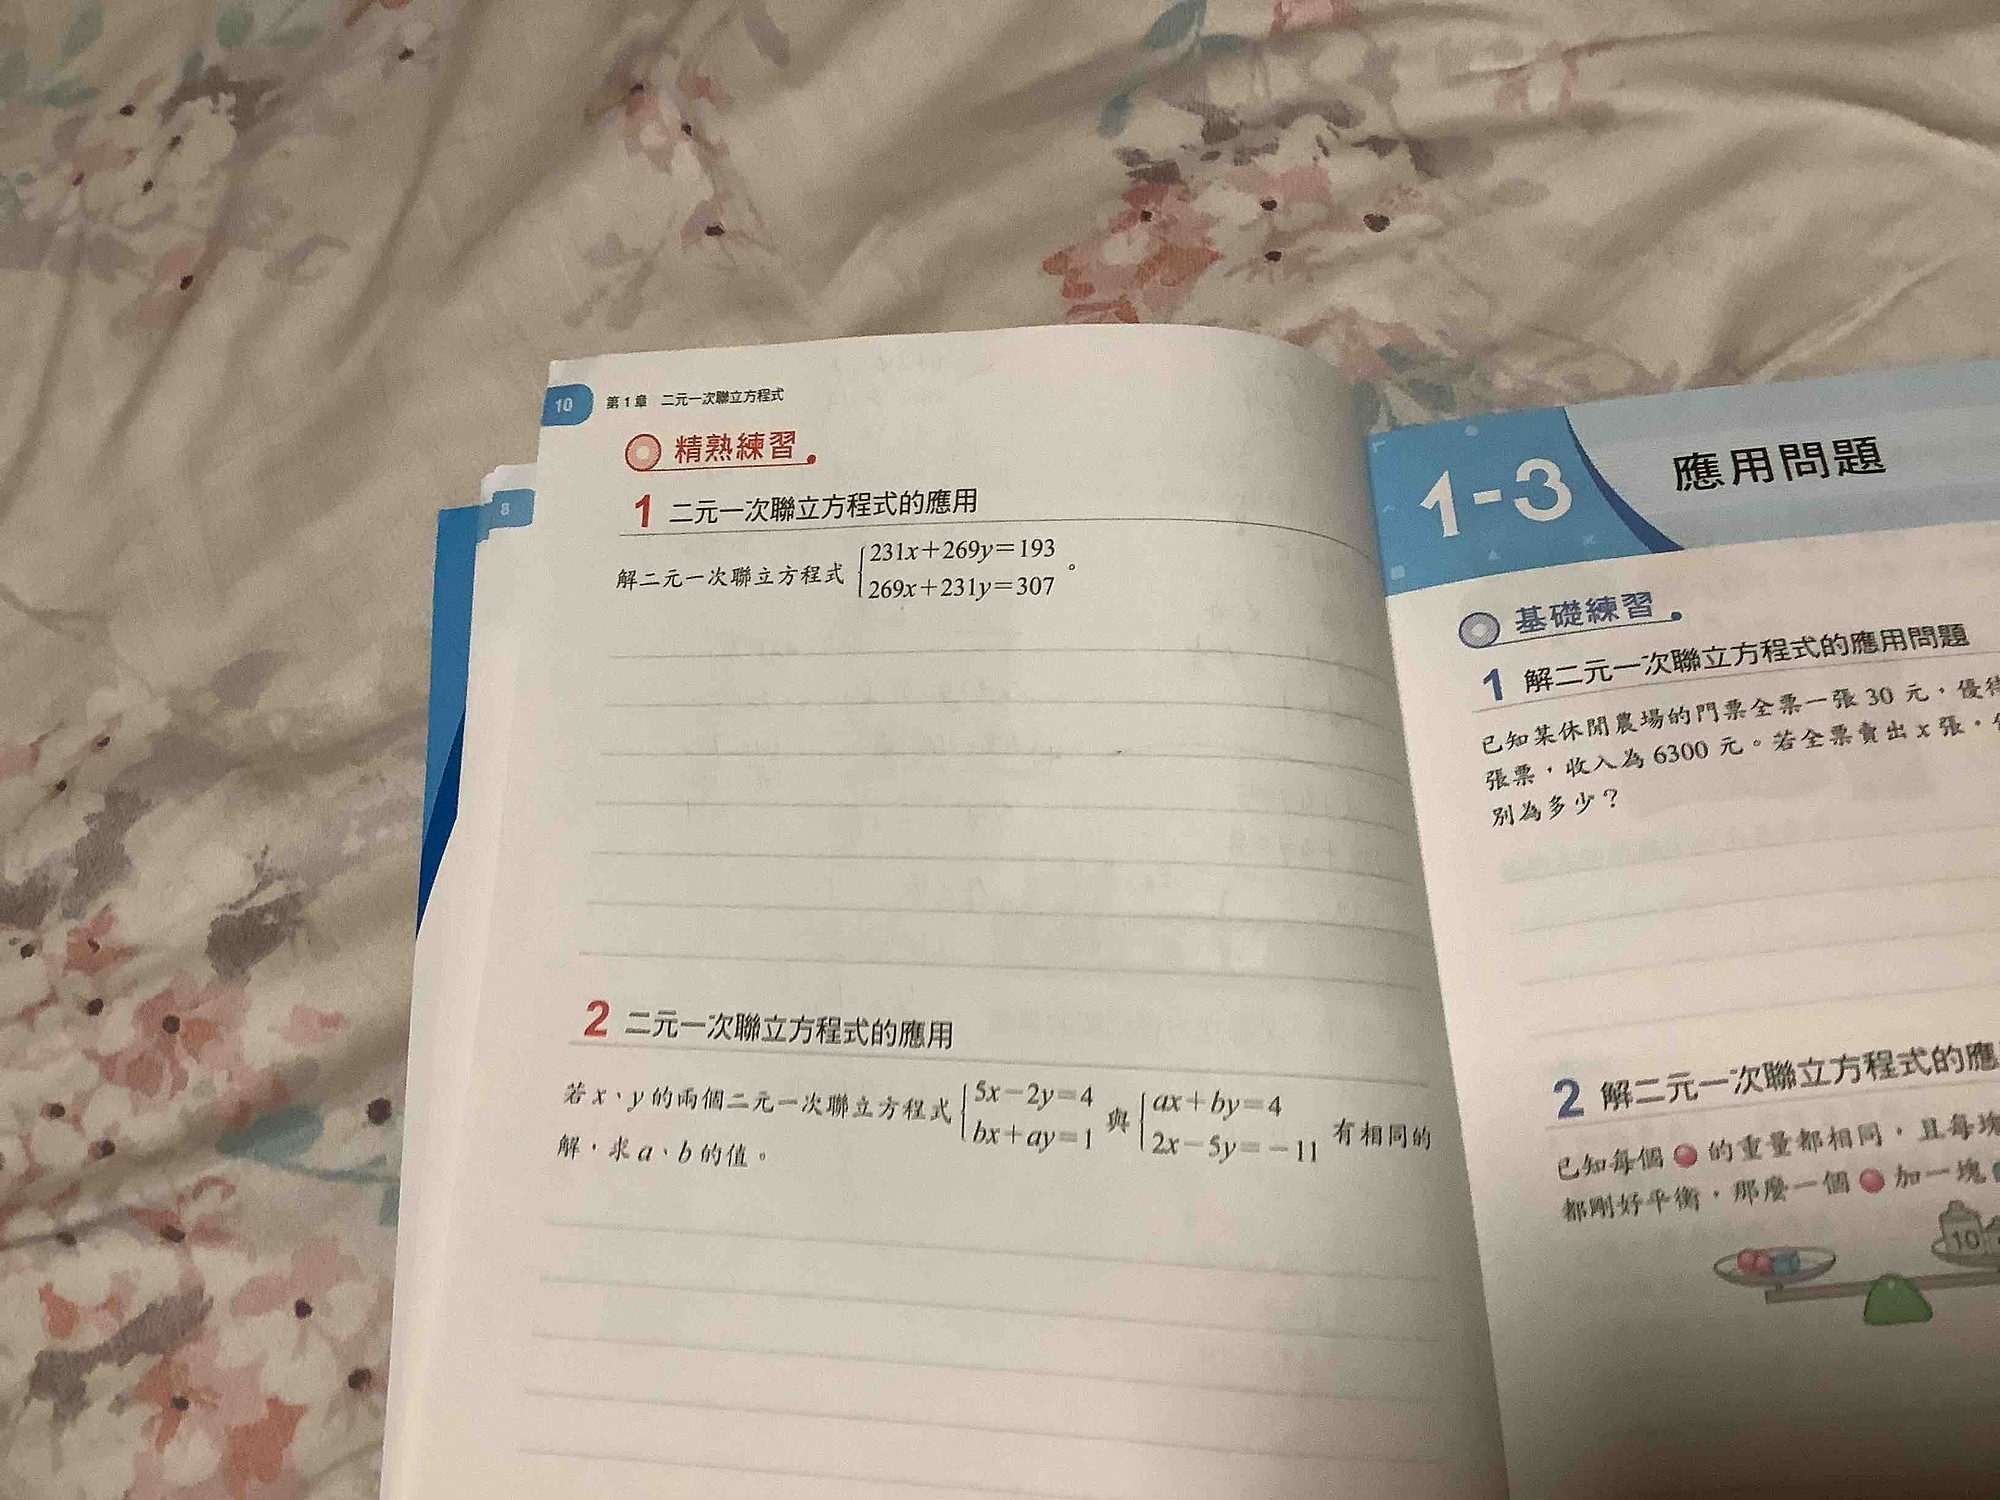 10 第1章 二元一次聯立方程式
精熟練習
1 二元一次聯立方程式的應用
解二元一次聯立方程式 { 231x+269y=193
269x+231y=307 。
2 二元一次聯立方程式的應用
若 x、y 的兩個二元一次聯立方程式 { 5x-2y=4
bx+ay=1 與 { ax+by=4
2x-5y=-11 有相同的
解,求 a、b 的值。
8
1-3 應用問題
基礎練習
1 解二元一次聯立方程式的應用問題
已知某休閒農場的門票全票一張 30 元,優待
張票,收入為 6300 元。若全票賣出 x 張,
別為多少?
2 解二元一次聯立方程式的應
已知每個 的重量都相同,且每塊
都剛好平衡,那麼一個 加一塊
10